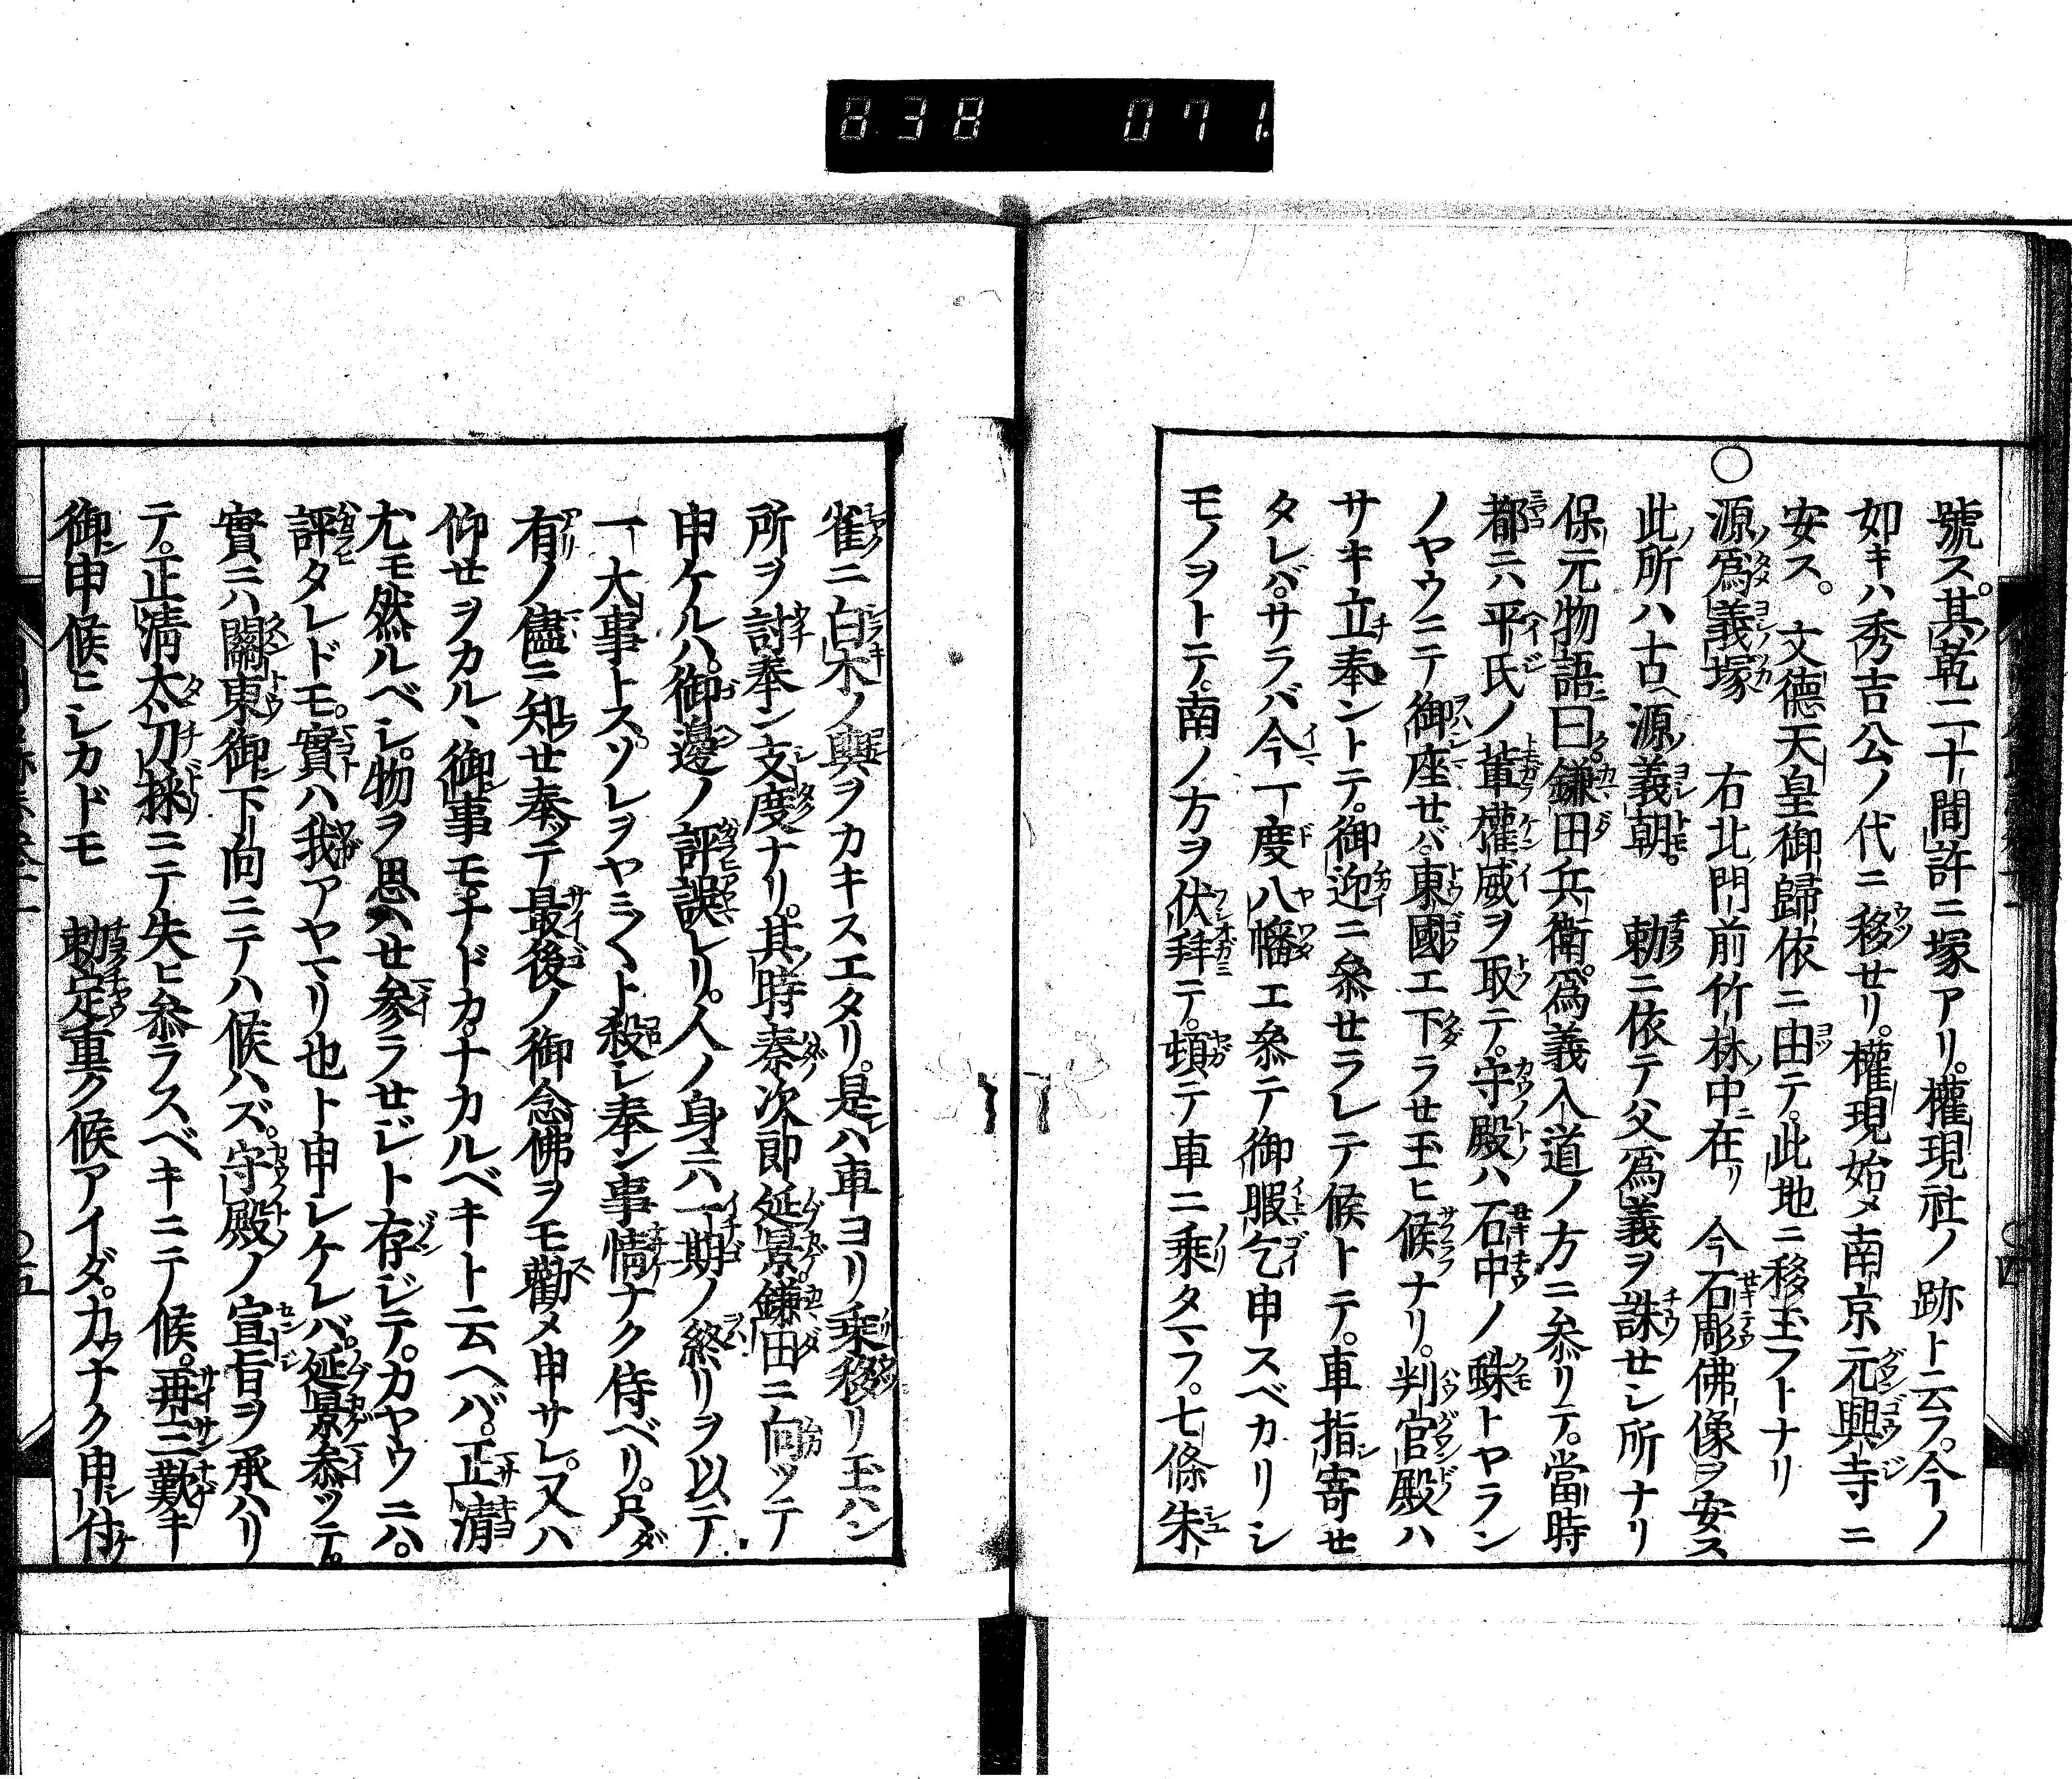 838 071
號ス。其乾二十間許ニ塚アリ。權現社ノ跡ト云フ。今ノ
如キハ秀吉公ノ代ニ移セリ。權現始メ南京元興寺ニ
安ス。文德天皇御歸依ニ由テ。此地ニ移玉フトナリ
○源爲義塚 右北門前竹林中ニ在リ 今石彫佛像ヲ安ス
此所ハ古ヘ源義朝。 勅ニ依テ父爲義ヲ誅セシ所ナリ
保元物語ニ曰ク。鎌田兵衞。爲義入道ノ方ニ參リテ。當時
都ニハ平氏ノ輩權威ヲ取テ。守殿ハ石中ノ蛛トヤラン
ノヤウニテ御座セバ。東國エ下ラセ玉ヒ候ナリ。判官殿ハ
サキ立奉ントテ。御迎ニ參セラレテ候トテ。車指寄セ
タレバ。サラバ今一度八幡エ參テ御暇乞申スベカリシ
モノヲトテ。南ノ方ヲ伏拜テ。頓テ車ニ乘タマフ。七條朱
雀ニ白木ノ輿ヲカキスエタリ。是ハ車ヨリ乘移リ玉ハン
所ヲ討奉ン支度ナリ。其時秦次郎延景。鎌田ニ向ッテ
申ケルハ。御邊ノ評誤レリ。人ノ身ニハ一期ノ終リヲ以テ
一大事トス。ソレヲヤミ〱ト殺シ奉ン事情ナク侍ベリ。只ダ
有ノ儘ニ知セ奉ッテ。最後ノ御念佛ヲモ勸メ申サレ。又ハ
仰セヲカル丶御事モナドカナカルベキト云ヘバ。正淸
尤モ然ルベシ。物ヲ思ハセ參ラセジト存ジテ。カヤウニハ。
評タレドモ。實ハ我アヤマリ也ト申シケレバ。延景參ッテ。
實ニハ關東御下向ニテハ候ハズ。守殿ノ宣旨ヲ承ハリ
テ。正淸太刀採ニテ失ヒ參ラスベキニテ候。再三歎キ
御申候ヒシカドモ 勅定重ク候アイダ。力ナク申シ付